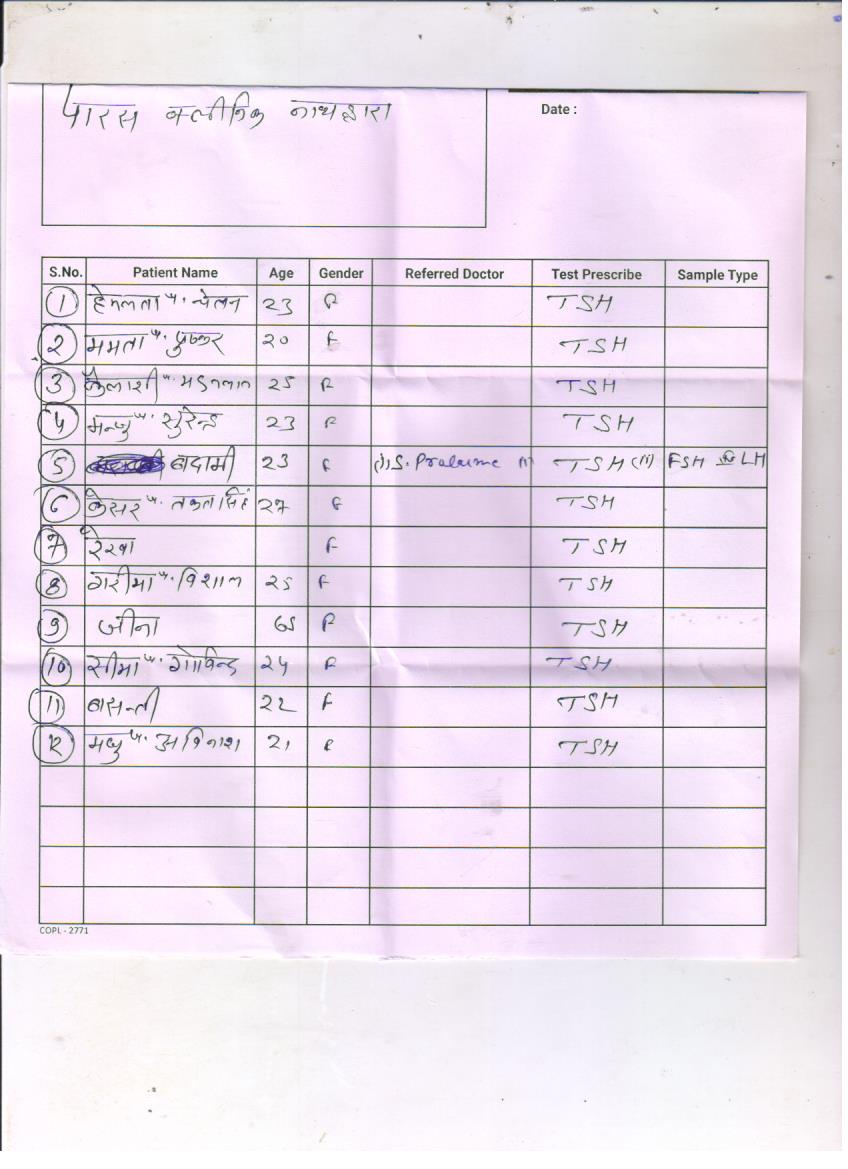 पारस क्लीनिक नाथद्वारा
Date :
S.No. Patient Name Age Gender Referred Doctor Test Prescribe Sample Type
1 हेमलता w. 23 F TSH
2 ममता w. पुष्कर 20 F TSH
3 कैलाशी w. 25 F TSH
4 मन्जु w. सुरेन्द्र 23 F TSH
5 बादामी 23 F S. TSH (11) FSH LH
6 केसर w. तकतसिंह 27 F TSH
7 रेखा F TSH
8 गरीमा w. विशाल 25 F TSH
9 जीना 65 F TSH
10 सीमा w. गोविन्द 24 F TSH
11 बासन्ती 22 F TSH
12 मधु w. अविनाश 21 F TSH
COPL - 2771